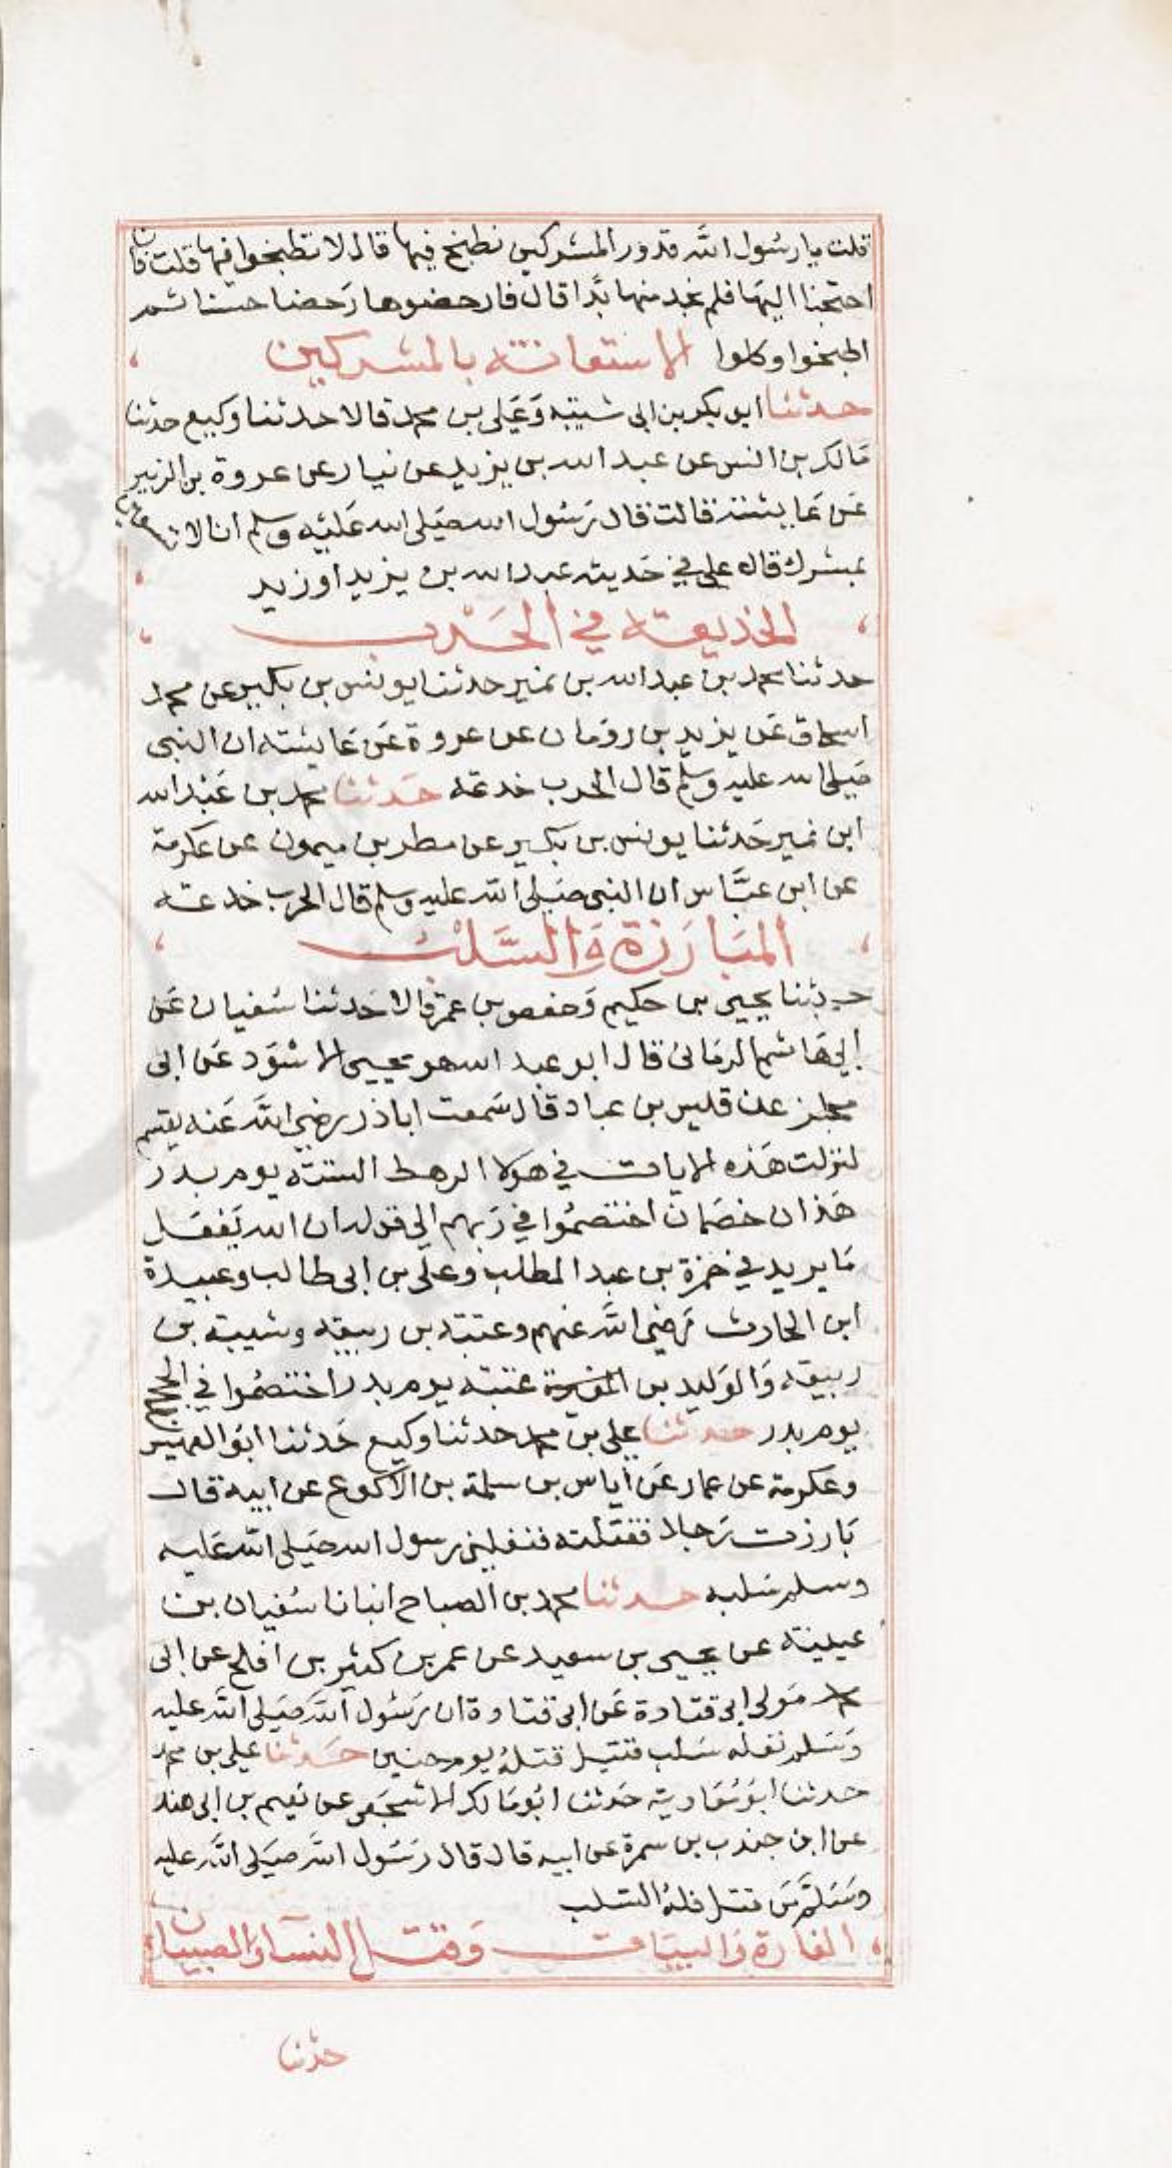 قلت يا رسول الله قدور المشركين نطبخ فيها قال لا تطبخوا فيها قلت فان
احتجنا اليها فلم نجد منها بدا قال فارحضوها رحضا حسنا ثم
اطبخوا وكلوا الاستعانة بالمشركين
حدثنا ابو بكر بن ابى شيبة وعلى بن محمد قالا حدثنا وكيع حدثنا
مالك بن انس عن عبد الله بن يزيد عن نيار عن عروة بن الزبير
عن عايشة قالت قال رسول الله صلى الله عليه وسلم انا لا نستعين
بمشرك قال على في حديثه عبد الله بن يزيد او زيد
الخديعة في الحرب
حدثنا محمد بن عبد الله بن نمير حدثنا يونس بن بكير عن محمد
اسحاق عن يزيد بن رومان عن عروة عن عايشة ان النبى
صلى الله عليه وسلم قال الحرب خدعة حدثنا محمد بن عبد الله
ابن نمير حدثنا يونس بن بكير عن مطر بن ميمون عن عكرمة
عن ابن عباس ان النبى صلى الله عليه وسلم قال الحرب خدعة
المبارزة والسلب
حدثنا يحيى بن حكيم وحفص بن عمر قالا حدثنا سفيان عن
ابي هاشم الرمانى قال ابو عبد الله هو يحيى الاسود عن ابى
مجلز عن قيس بن عباد قال سمعت اباذر رضي الله عنه يقسم
لنزلت هذه الايات في هولا الرهط الستة يوم بدر
هذان خصمان اختصموا في ربهم الى قوله ان الله يفعل
ما يريد في حمزة بن عبد المطلب وعلى بن ابى طالب وعبيدة
ابن الحارث رضى الله عنهم وعتبة بن ربيعة وشيبة بن
ربيعة والوليد بن عتبة يوم بدر اختصموا في الحجج
يوم بدر حدثنا على بن محمد حدثنا وكيع حدثنا ابو العميس
وعكرمة عن عمار عن اياس بن سلمة بن الاكوع عن ابيه قال
بارزت رجلا فقتلته فنفلنى رسول الله صلى الله عليه
وسلم سلبه حدثنا محمد بن الصباح انبانا سفيان بن
عيينة عن يحيى بن سعيد عن عمر بن كثير بن افلح عن ابى
محمد مولى ابى قتادة عن ابى قتادة ان رسول الله صلى الله عليه
وسلم نفله سلب قتيل قتله يوم حنين حدثنا على بن محمد
حدثنا ابو معاوية حدثنا ابو مالك الاشجعى عن نعيم بن ابى هند
عن ابن جندب بن سمرة عن ابيه قال قال رسول الله صلى الله عليه
وسلم من قتل فله السلب
الغارة والبيات وقتل النسآ والصبيان
حدثنا